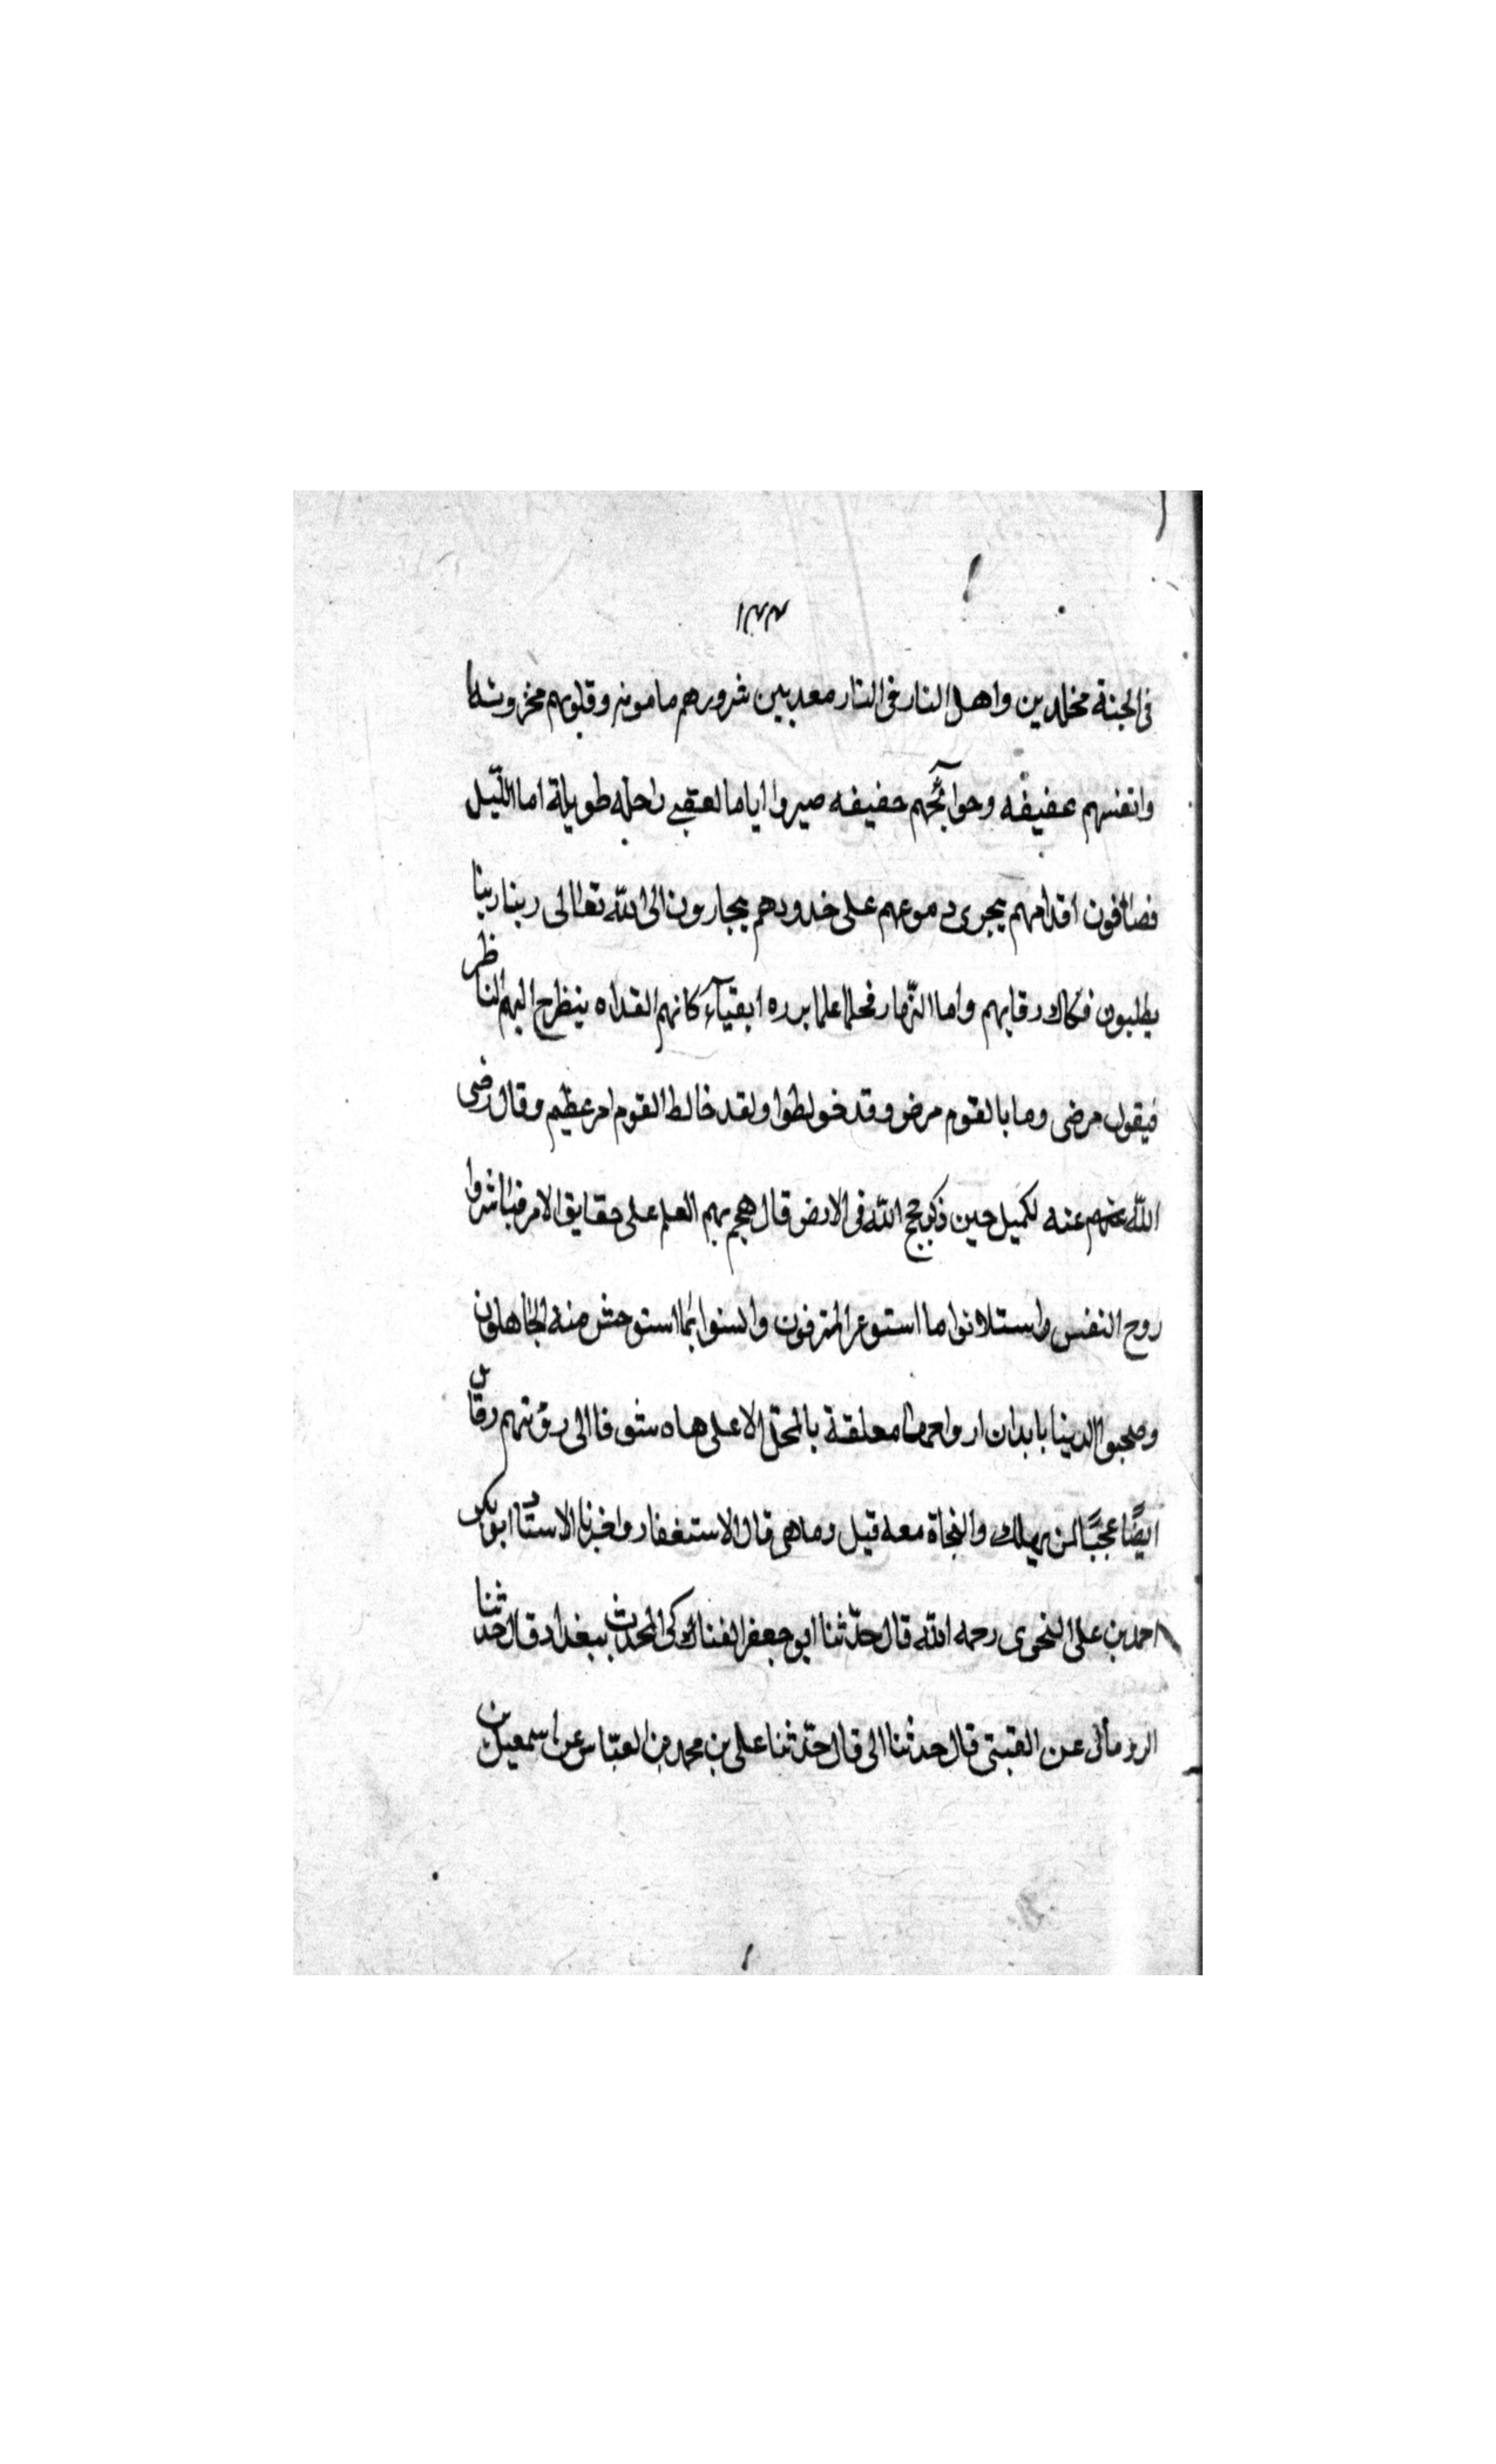 ١٣٣
فى الجنة مخلدين واهل النار فى النار معدبين شرورهم مامونه وقلوبهم مخزونه
وانفسهم عفيفه وحوائجهم حفيفه صيروا اياما لعقبى راحله طويلة اما اللّيل
فصافون اقدامهم يجرى دموعهم على خدودهم يجارون الى اللّه تعالى ربنا ربنا
يطلبون فكاك رقابهم واما النّهار فحلما علما برره ابقيآء كانهم القداه ينظر اليهم الناظر
فيقول مرضى وما بالقوم مرض وقد خولطوا ولقد خالط القوم امر عظيم وقال رضى
اللّه عنه لكميل حين ذكر حجج اللّه فى الارض قال هجم بهم العلم على حقايق الامر فباشروا
روح النفس واستلانوا ما استوعر المترفون وانسوا بما استوحش منه الجاهلون
وصحبوا الدينا بابدان ارواحها معلقة بالمحل الاعلى هاه شوفا الى رؤيتهم وقال
ايضًا عجبًا لمن يهلك والنجاة معه قيل وما هى قال الاستغفار واخبرنا الاستاد ابو بكر
احمد بن على النحوى رحمه اللّه قال حدّثنا ابو جعفر الفناكى المحدث ببغداد قال حدثنا
الرومانى عن القبتى قال حدثنا الى قال حدّثنا على بن محمد بن العبّاس عن اسمعيل بن